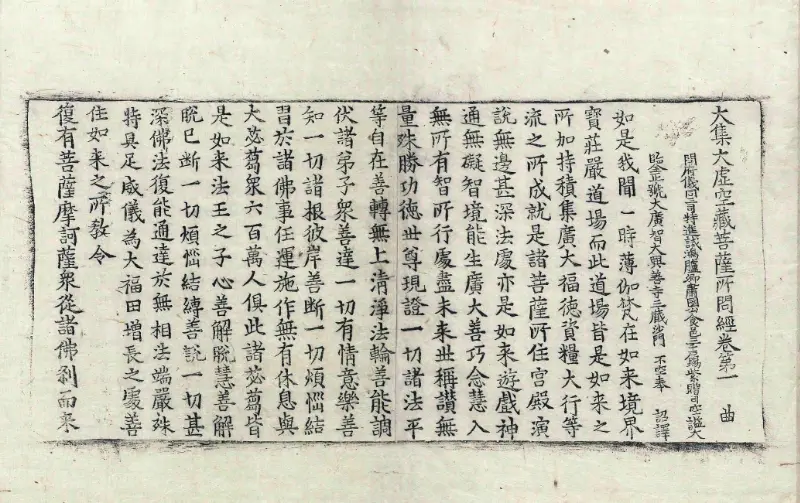 大集大虛空藏菩薩所問經卷第一 曲
開府儀同三司特進試鴻臚卿肅國公食邑三千戶賜紫贈司空謚大
鑒正號大廣智大興善寺三藏沙門 不空奉 詔譯
如是我聞一時薄伽梵在如来境界
寶莊嚴道場而此道場皆是如来之
所加持積集廣大福德資糧大行等
流之所成就是諸菩薩所住宮殿演
說無邊甚深法處亦是如来遊戲神
通無礙智境能生廣大善巧念慧入
無所有智所行處盡未来世稱讚無
量殊勝功德世尊現證一切諸法平
等自在善轉無上清淨法輪善能調
伏諸弟子眾善達一切有情意樂善
知一切諸根彼岸善斷一切煩惱結
習於諸佛事任運施作無有休息與
大苾蒭眾六百萬人俱此諸苾蒭皆
是如来法王之子心善解脫慧善解
脫已斷一切煩惱結縛善說一切甚
深佛法復能通達於無相法端嚴殊
特具足威儀為大福田增長之處善
住如来之所教令
復有菩薩摩訶薩眾從諸佛刹而来